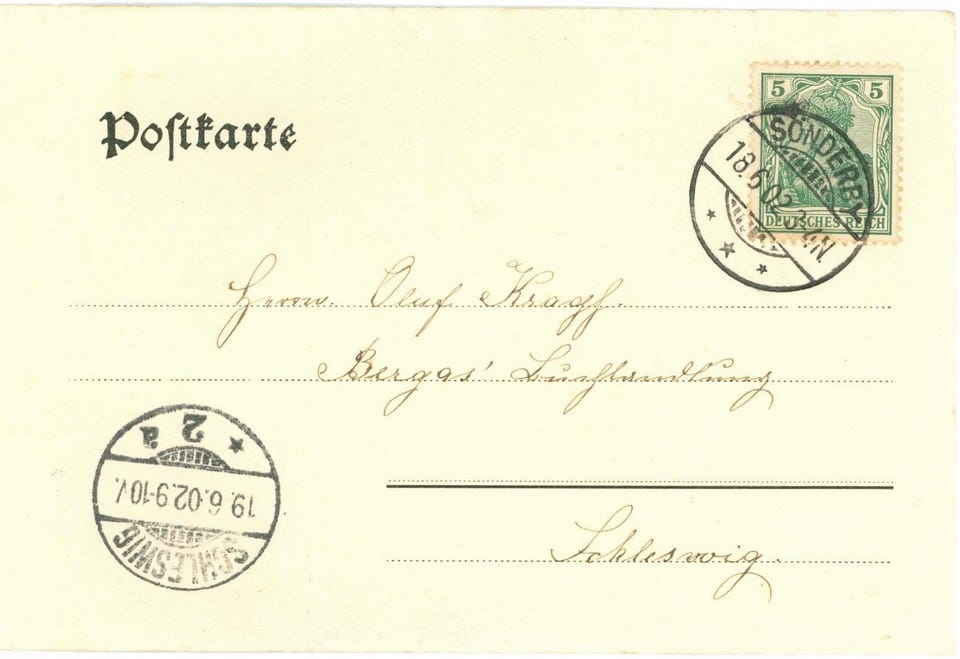 Postkarte
5 5
DEUTSCHES REICH
SONDERBY
18.6.02.3-4N.
Herrn. Oluf Kragh.
Bergas' Buchhandlung
Schleswig.
SCHLESWIG
19.6.02.9-10V.
* 2 a